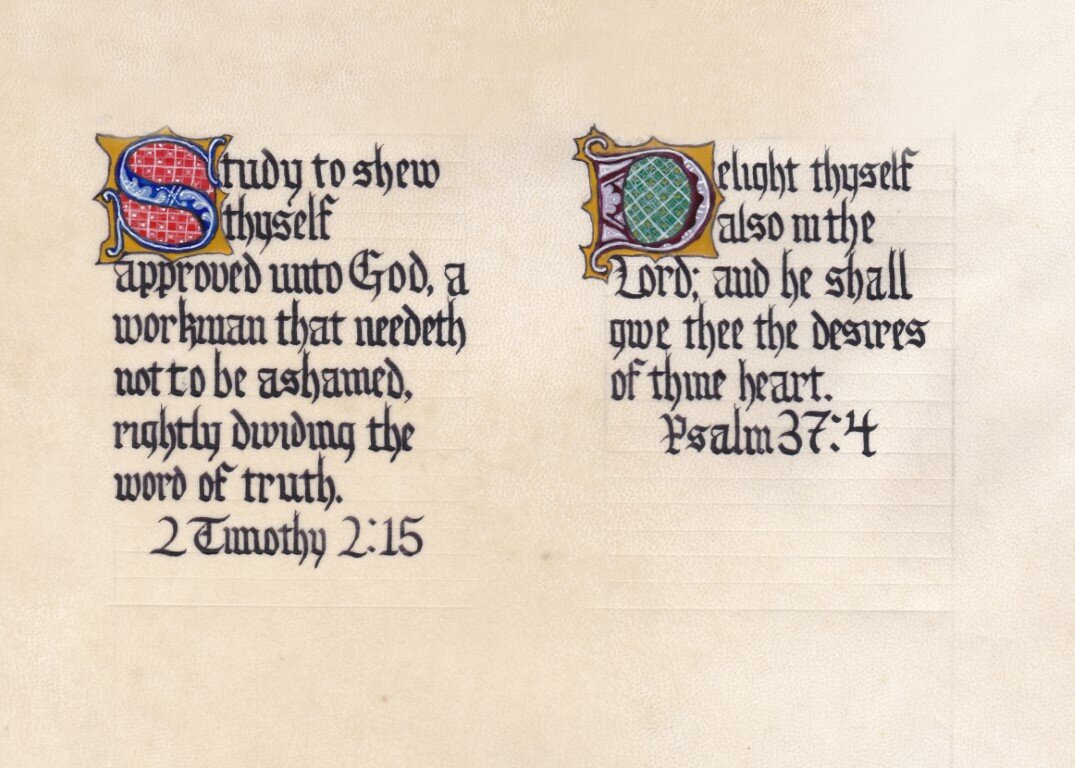 Study to shew
thyself
approved unto God, a
workman that needeth
not to be ashamed,
rightly dividing the
word of truth.
2 Timothy 2:15
Delight thyself
also in the
Lord; and he shall
give thee the desires
of thine heart.
Psalm 37:4